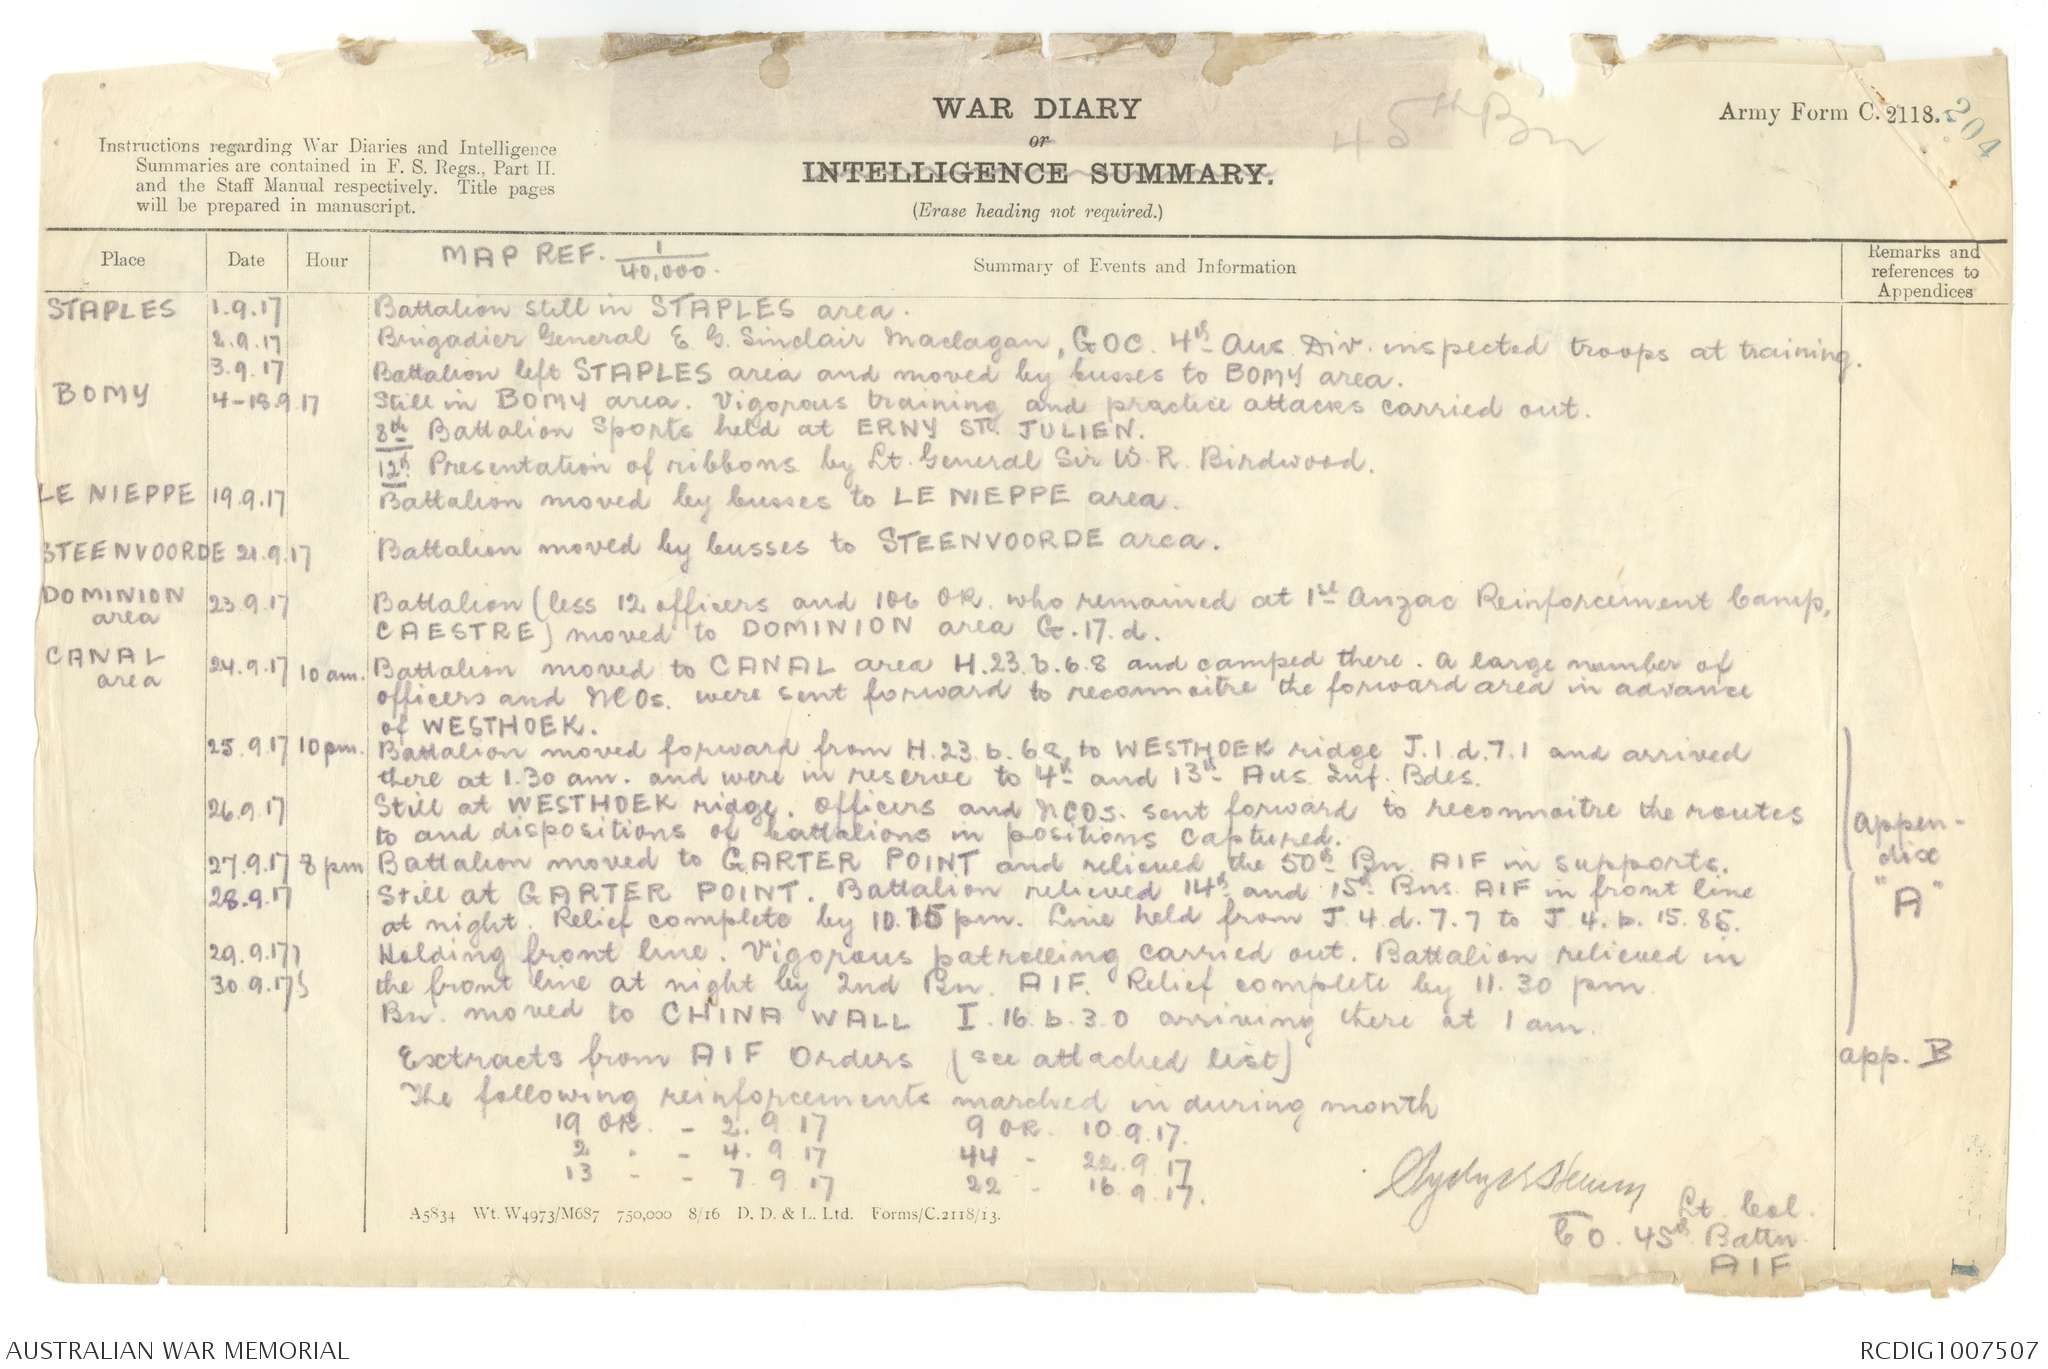 WAR DIARY
or
INTELLIGENCE SUMMARY.
(Erase heading not required.)
45th Bn
Army Form C. 2118.
204
Instructions regarding War Diaries and Intelligence
Summaries are contained in F. S. Regs., Part II.
and the Staff Manual respectively. Title pages
will be prepared in manuscript.
Place Date Hour MAP REF. 1/40,000. Summary of Events and Information Remarks and references to Appendices
STAPLES 1.9.17 Battalion still in STAPLES area.
2.9.17 Brigadier General E G. Sinclair Maclagan, GOC. 4th Aus Div. inspected troops at training.
3.9.17 Battalion left STAPLES area and moved by busses to BOMY area.
BOMY 4-18.9.17 Still in BOMY area. Vigorous training and practice attacks carried out.
8th Battalion Sports held at ERNY ST. JULIEN.
12th Presentation of ribbons by Lt. General Sir W. R. Birdwood.
LE NIEPPE 19.9.17 Battalion moved by busses to LE NIEPPE area.
STEENVOORDE 21.9.17 Battalion moved by busses to STEENVOORDE area.
DOMINION area 23.9.17 Battalion (less 12 officers and 106 OR. who remained at 1st Anzac Reinforcement Camp,
CAESTRE) moved to DOMINION area G.17.d.
CANAL area 24.9.17 10 am. Battalion moved to CANAL area H.23.b.6.8 and camped there. A large number of
officers and NCOs. were sent forward to reconnoitre the forward area in advance
of WESTHOEK.
25.9.17 10 pm. Battalion moved forward from H.23.b.68 to WESTHOEK ridge J.1.d.7.1 and arrived
there at 1.30 am. and were in reserve to 4th and 13th Aus Inf. Bdes.
26.9.17 Still at WESTHOEK ridge. Officers and NCOs. sent forward to reconnoitre the routes
to and dispositions of battalions in positions captured.
27.9.17 8 pm Battalion moved to GARTER POINT and relieved the 50th Bn AIF in supports.
28.9.17 Still at GARTER POINT. Battalion relieved 14th and 15th Bns AIF in front line
at night. Relief complete by 10.15 pm. Line held from J.4.d.7.7 to J.4.b.15.85.
29.9.17) Holding front line. Vigorous patrolling carried out. Battalion relieved in
30.9.17) the front line at night by 2nd Bn. AIF. Relief complete by 11.30 pm.
Bn. moved to CHINA WALL I.16.b.3.0 arriving there at 1 am.
Appen-
dix
"A"
Extracts from AIF Orders (see attached list) app. B
The following reinforcements marched in during month
19 OR. - 2.9.17 9 OR. 10.9.17.
2 " - 4.9.17 44 - 22.9.17
13 - - 7.9.17 22 - 16.9.17.
Lt. Col.
CO. 45th Battn
AIF
A5834 Wt. W4973/M687 750,000 8/16 D. D. & L. Ltd. Forms/C.2118/13.
1
AUSTRALIAN WAR MEMORIAL
RCDIG1007507